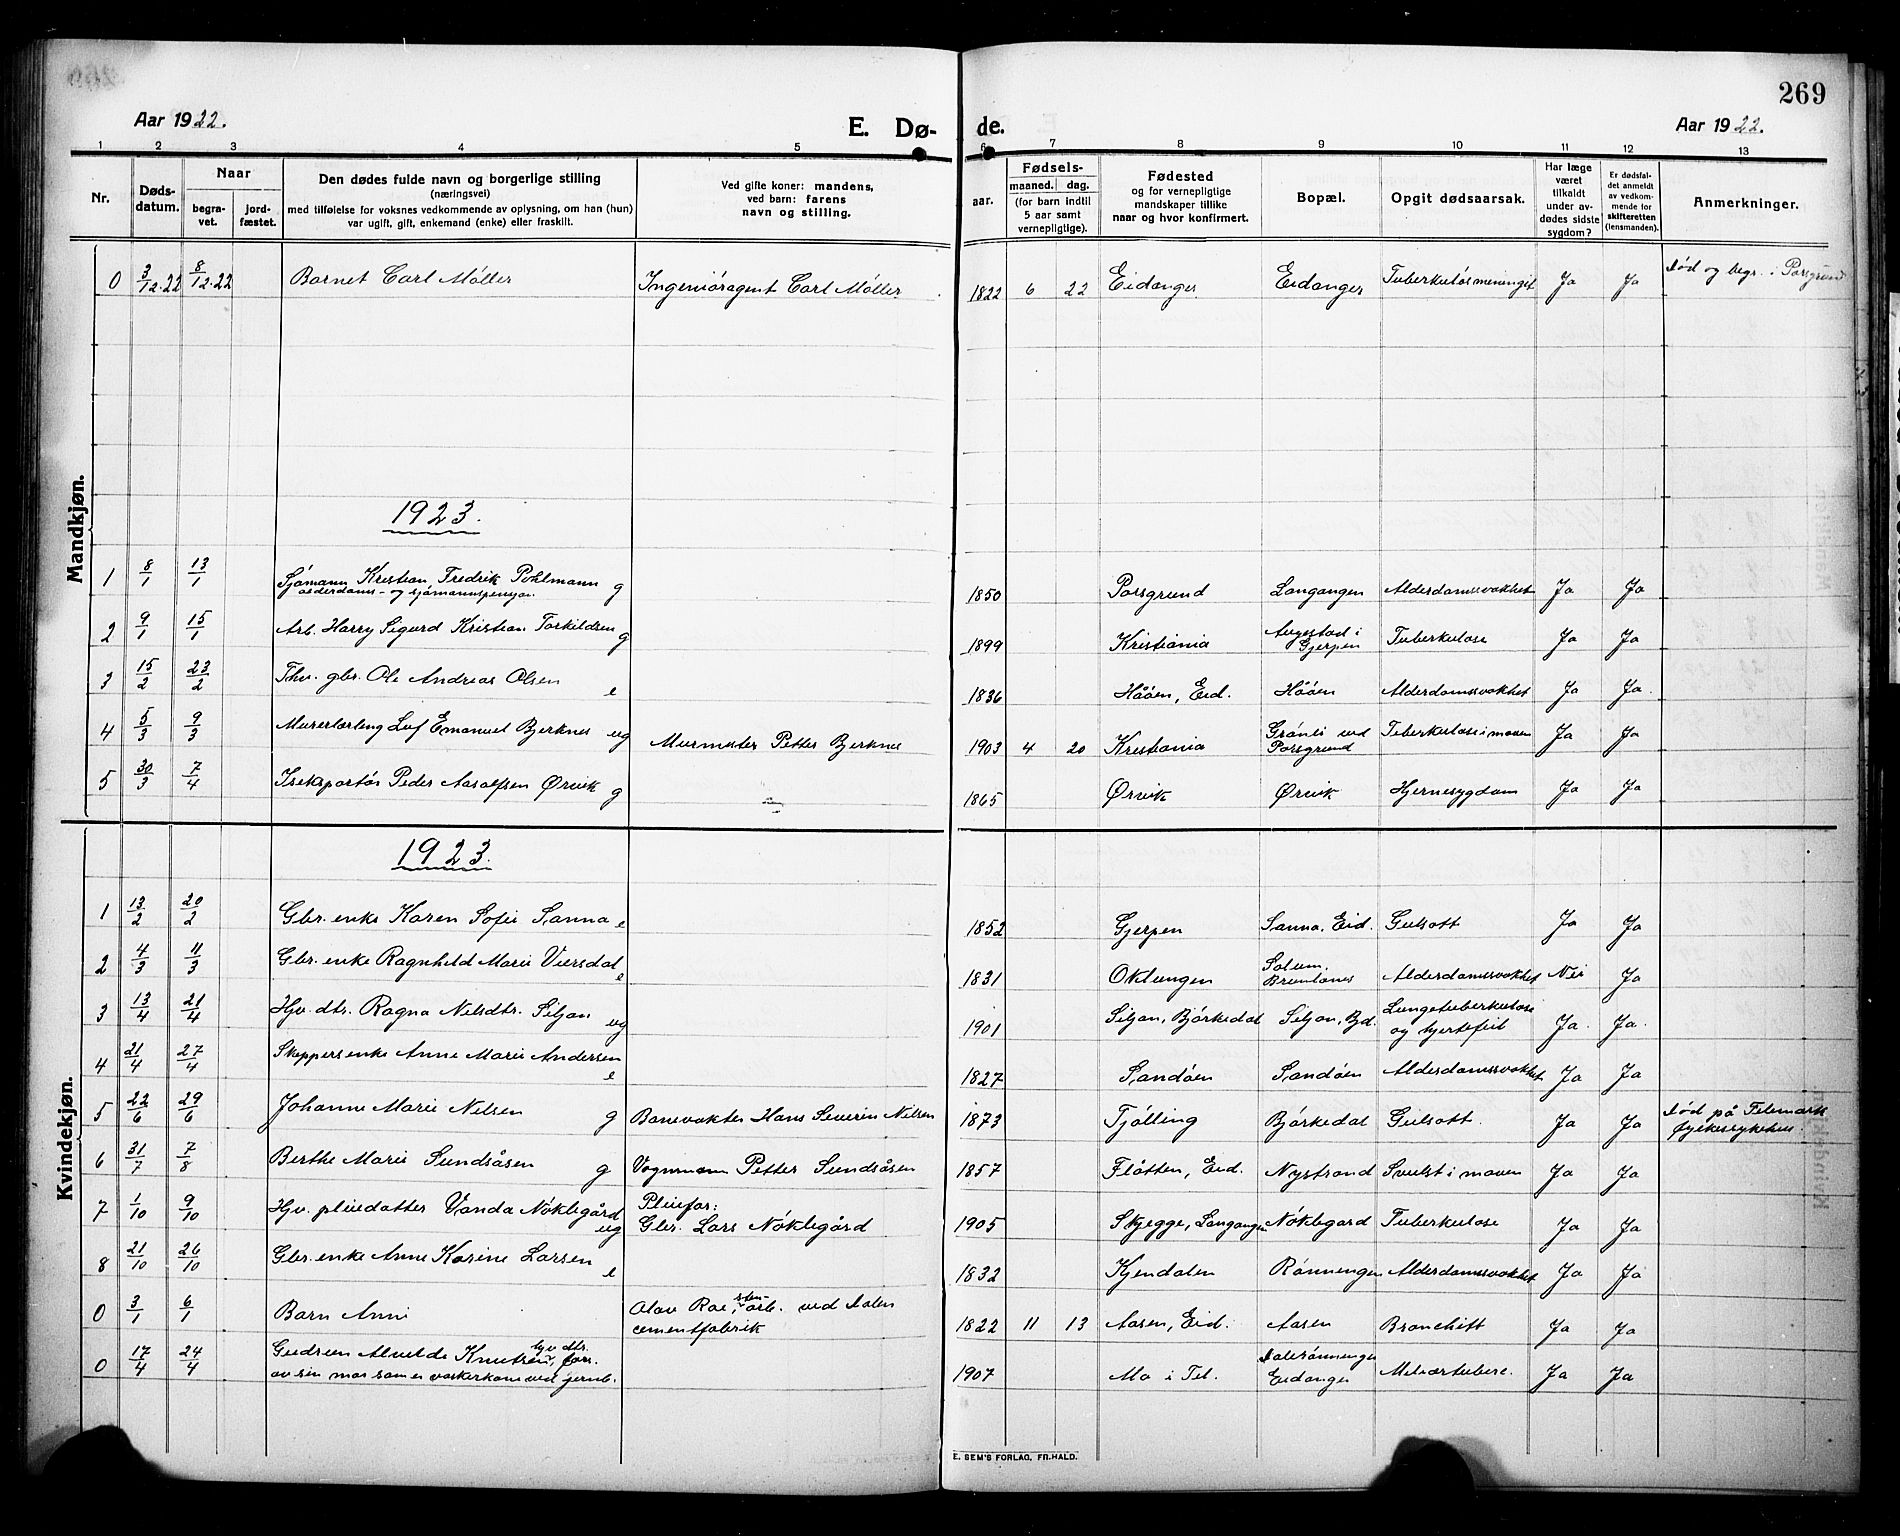 269
Aar 1922. E. Dø- de. Aar 1922.
1 2 3 4 5 6 7 8 9 10 11 12 13
Nr.
Døds-
datum.
Naar
begra-
vet.
jord-
fæstet.
Den dødes fulde navn og borgerlige stilling
(næringsvei)
med tilføielse for voksnes vedkommende av oplysning, om han (hun)
var ugift, gift, enkemand (enke) eller fraskilt.
Ved gifte koner: mandens,
ved barn: farens
navn og stilling.
Fødsels-
aar.
maaned. dag.
(for barn indtil
5 aar samt
vernepligtige).
Fødested
og for vernepligtige
mandskaper tillike
naar og hvor konfirmert.
Bopæl.
Opgit dødsaarsak.
Har læge
været
tilkaldt
under av-
dødes sidste
sygdom?
Er dødsfal-
det anmeldt
av vedkom-
mende for
skifteretten
(lensmanden).
Anmerkninger.
Mandkjøn.
0 3/12.22 8/12.22 Barnet Carl Møller Ingeniøragent Carl Møller 1822 6 22 Eidanger Eidanger Tuberkuløsmeningit Ja Ja Død og begr. i Porsgrund
1923.
1 8/1 13/1 Sjømann Kristian Fredrik Pohlmann g 1850 Porsgrund Langangen Alderdomssvakhet Ja Ja
alderdoms- og sjømannspensjon
2 9/1 15/1 Arb. Harry Sigurd Kristian Torkildsen g 1899 Kristiania Augestad i Gjerpen Tuberkulose Ja Ja
3 15/2 23/2 Fhv. gbr. Ole Andreas Olsen e 1836 Hååen, Eid. Hååen Alderdomssvakhet Ja Ja.
4 5/3 9/3 Murerlærling Leif Emanuel Bjerknes ug Murmester Petter Bjerknes 1903 4 20 Kristiania Grønli ved Porsgrund Tuberkulose i maven Ja Ja
5 30/3 7/4 Iseksportør Peder Aasolfsen Ørvik g 1865 Ørvik Ørvik Hjernesygdom Ja Ja
Kvindekjøn.
1923.
1 13/2 20/2 Gbr. enke Karen Sofie Sanna e 1852 Gjerpen Sanna, Eid. Gulsott Ja Ja
2 4/3 11/3 Gbr. enke Ragnhild Marie Viersdal e 1831 Oklungen Solum, Brunlanes Alderdomssvakhet Nei Ja
3 13/4 21/4 Hjv. dtr. Ragna Nilsdtr. Siljan ug 1901 Siljan, Bjørkedal Siljan, Bjd. Lungetuberkulose
og hjertefeil Ja. Ja.
4 21/4 27/4 Skippersenke Anne Marie Andersen e 1827 Sandøen Sandøen Alderdomssvakhet Ja Ja
5 22/6 29/6 Johanne Marie Nilsen g Banevokter Hans Severin Nilsen 1873 Tjølling Bjørkedal Gulsott. Ja Ja Død på Telemark
fylkessykehus.
6 31/7 7/8 Berthe Marie Sundsåsen g Vognmann Petter Sundsåsen 1857 Fløtten, Eid. Nystrand Svulst i maven Ja Ja
7 1/10 9/10 Hjv. pleiedatter Vanda Nøklegård ug Pleiefar:
Gbr. Lars Nøklegård 1905 Skjegge, Langangen Nøklegård Tuberkulose Ja Ja
8 21/10 26/10 Gbr. enke Anne Karine Larsen e 1832 Kjendalen Rønningen Alderdomssvakhet Ja Ja
0 3/1 6/1 Barn Anni Olav Rae, sten-arb. ved Dalen
cementfabrik 1822 11 13 Aasen, Eid. Aasen Bronchitt Ja Ja
0 17/4 24/4 Gudrun Alvilde Knutsen, hjv. dtr. fors.
av sin mor som er vaskerkone ved jernb. 1907 Mo i Tel. Dalsrønningen
Eidanger Miliærtuberc. Ja Ja
E. SEM'S FORLAG, FR.HALD.